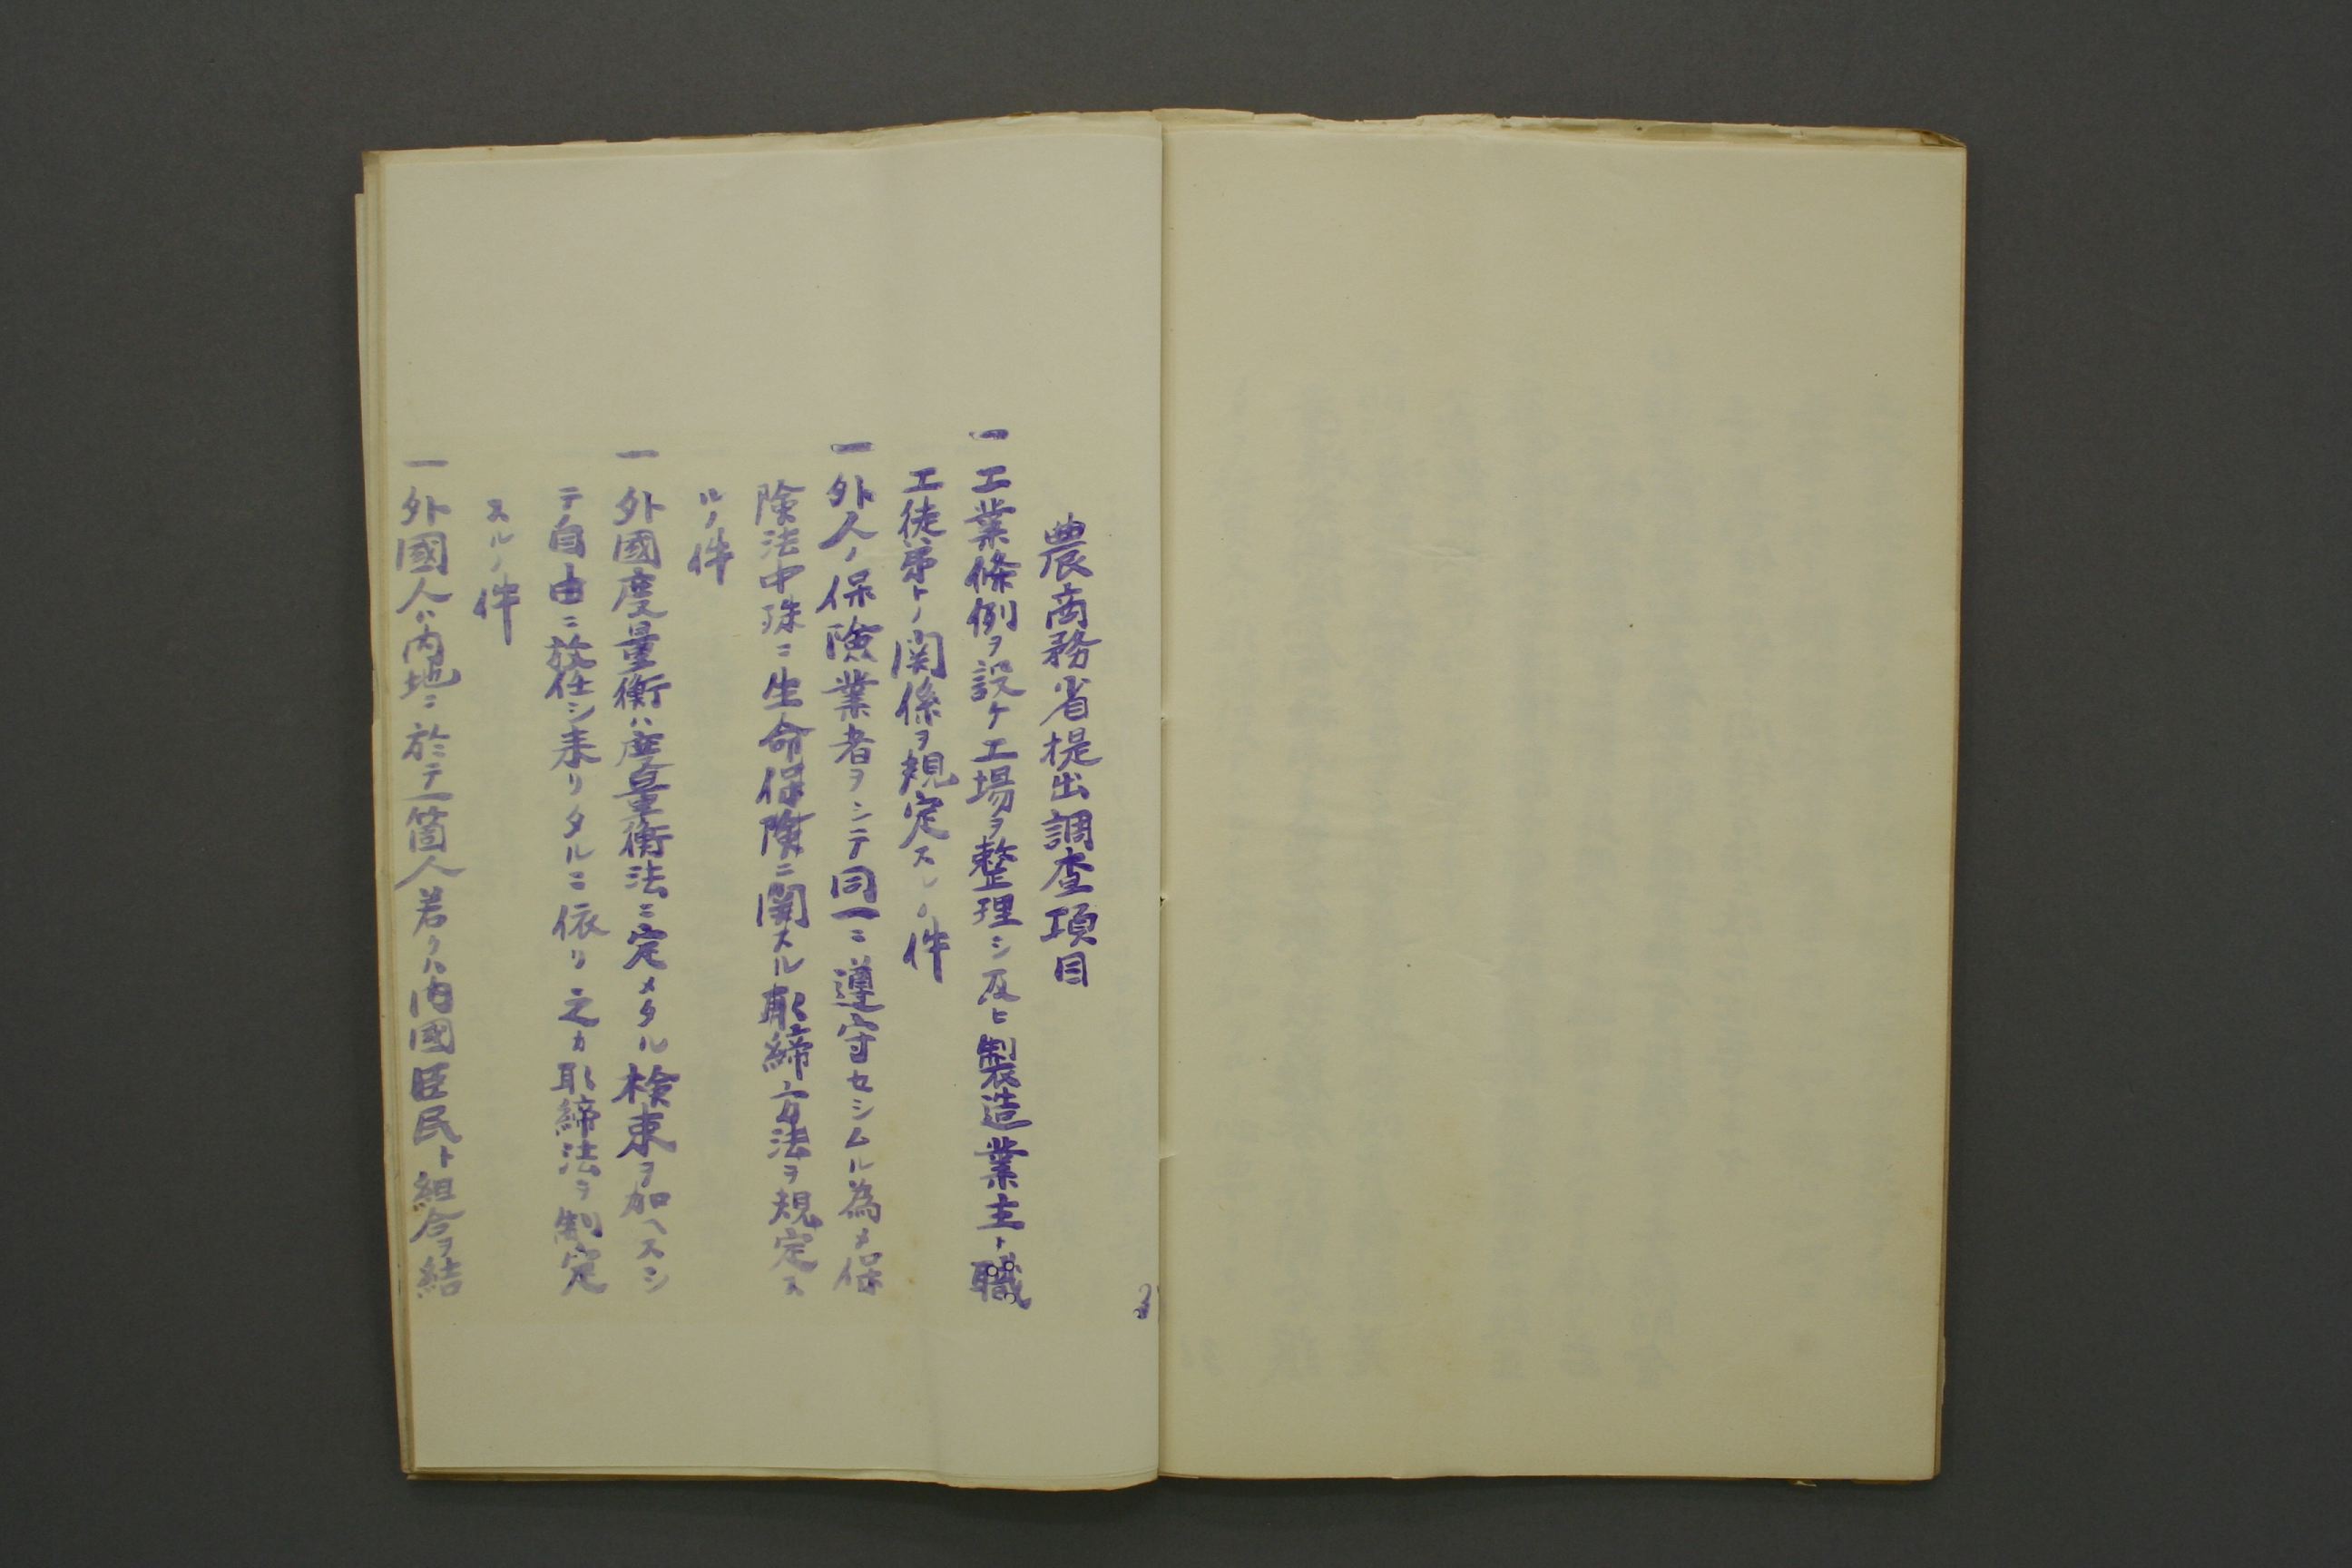 農商務省提出調査項目
一工業條例ヲ設ケ工場ヲ整理シ及ヒ製造業主ト職
工徒弟トノ関係ヲ規定スルノ件
一外人ノ保険業者ヲシテ同一ニ遵守セシムル為メ保
険法中殊ニ生命保険ニ関スル取締方法ヲ規定ス
ルノ件
一外國度量衡ハ度量衡法ニ定メタル検束ヲ加ヘスシ
テ自由ニ放任シ来リタルニ依リ之カ取締法ヲ制定
スルノ件
一外國人ハ内地ニ於テ一箇人若クハ内國臣民ト組合ヲ結